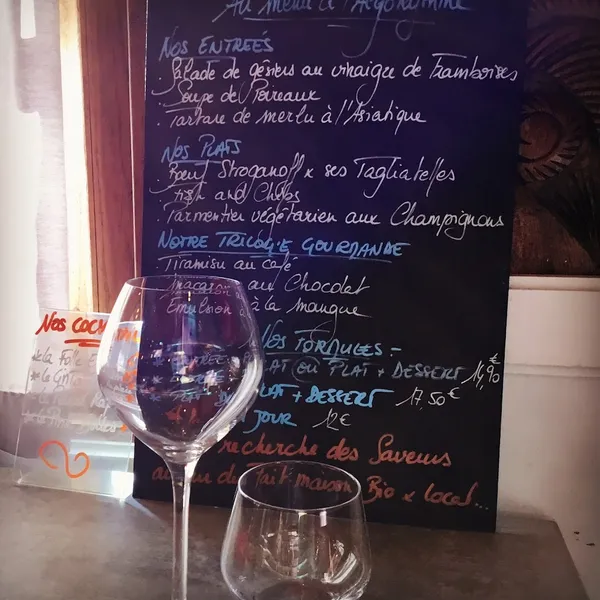 Au menu de l'Argonymine
NOS ENTREÉS
. Salade de gésiers au vinaigre de Framboises
. Soupe de Poireaux
. Tartare de merlu à l'Asiatique
NOS PLATS
. Boeuf Stroganoff x ses Tagliatelles
. Fish and Chips
. Parmentier végétarien aux Champignons
NOTRE TRILOGIE GOURMANDE
. Tiramisu au café
. Macaron au Chocolat
Emulsion à la mangue
NOS FORMULES =
* ENTRÉE PLAT OU PLAT + DESSERT 14,90 €
* ENTRÉE PLAT + DESSERT 17,50 €
* PLAT DU JOUR 12 €
recherche des Saveurs
du Fait maison Bio x local...
NOS COC